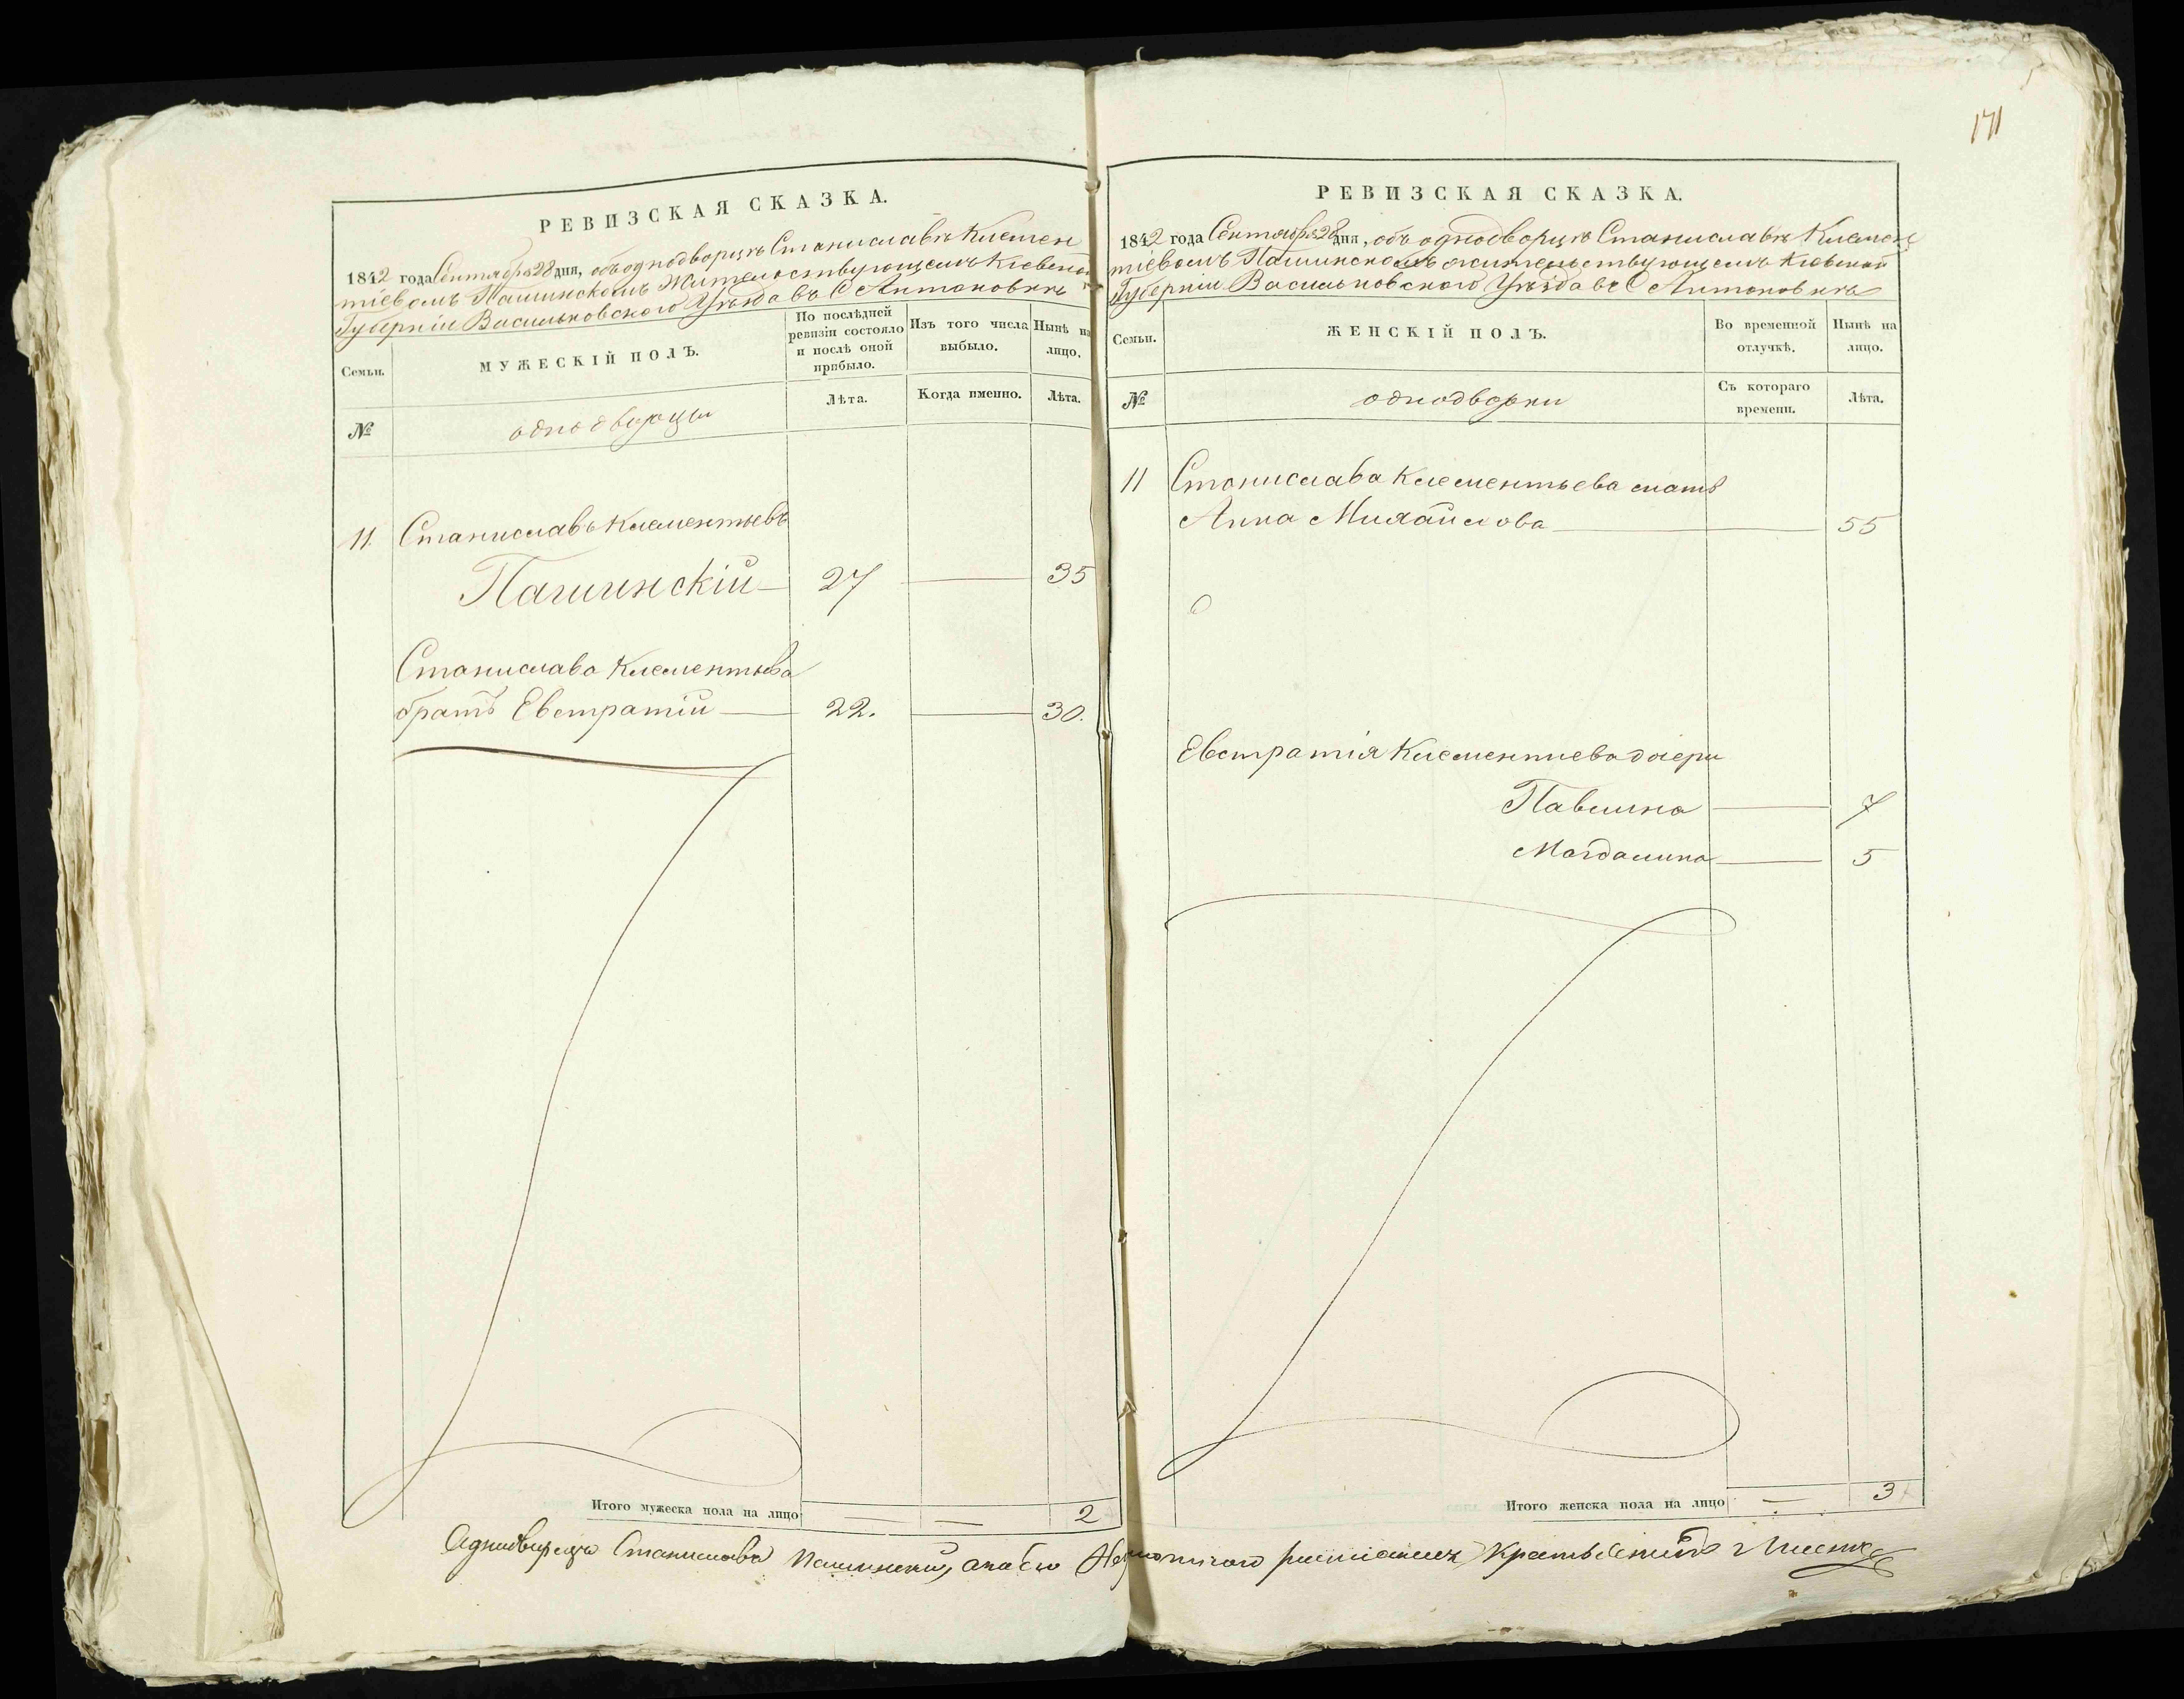 171
РЕВИЗСКАЯ СКАЗКА.
1842 года Сентября 28 дня, объ однодворцѣ Станиславѣ Клемен
тіевомъ Пашинскомъ Жительствующемъ Кіевской
Губерніи Васильковского Уѣзда въ С Антоновкѣ
Семьи.
МУЖЕСКІЙ ПОЛЪ.
По послѣдней
ревизіи состояло
и послѣ оной
прибыло.
Изъ того числа
выбыло.
Нынѣ на
лицо.
№
однодворцы
Лѣта.
Когда именно.
Лѣта.
11. Станиславъ Клементьевъ
Пашинскій — 27 — 35
Станислава Клементьева
братъ Евстратій — 22. — 30.
Итого мужеска пола на лицо — — 2
РЕВИЗСКАЯ СКАЗКА.
1842 года Сентября 28 дня, объ однодворцѣ Станиславѣ Клемен
тіевомъ Пашинскомъ жительствующемъ Кіевской
Губерніи Васильковского Уѣзда въ С Антоновкѣ
Семьи.
ЖЕНСКІЙ ПОЛЪ.
Во временной
отлучкѣ.
Нынѣ на
лицо.
№
однодворки
Съ котораго
времени.
Лѣта.
11 Станислава Клементьева мать
Анна Михайлова — 55
Евстратія Клементиева дочери
Павлина — 7
Магдалина — 5
Итого женска пола на лицо — 3
Однодворецъ Станиславъ Пашинский, а по его